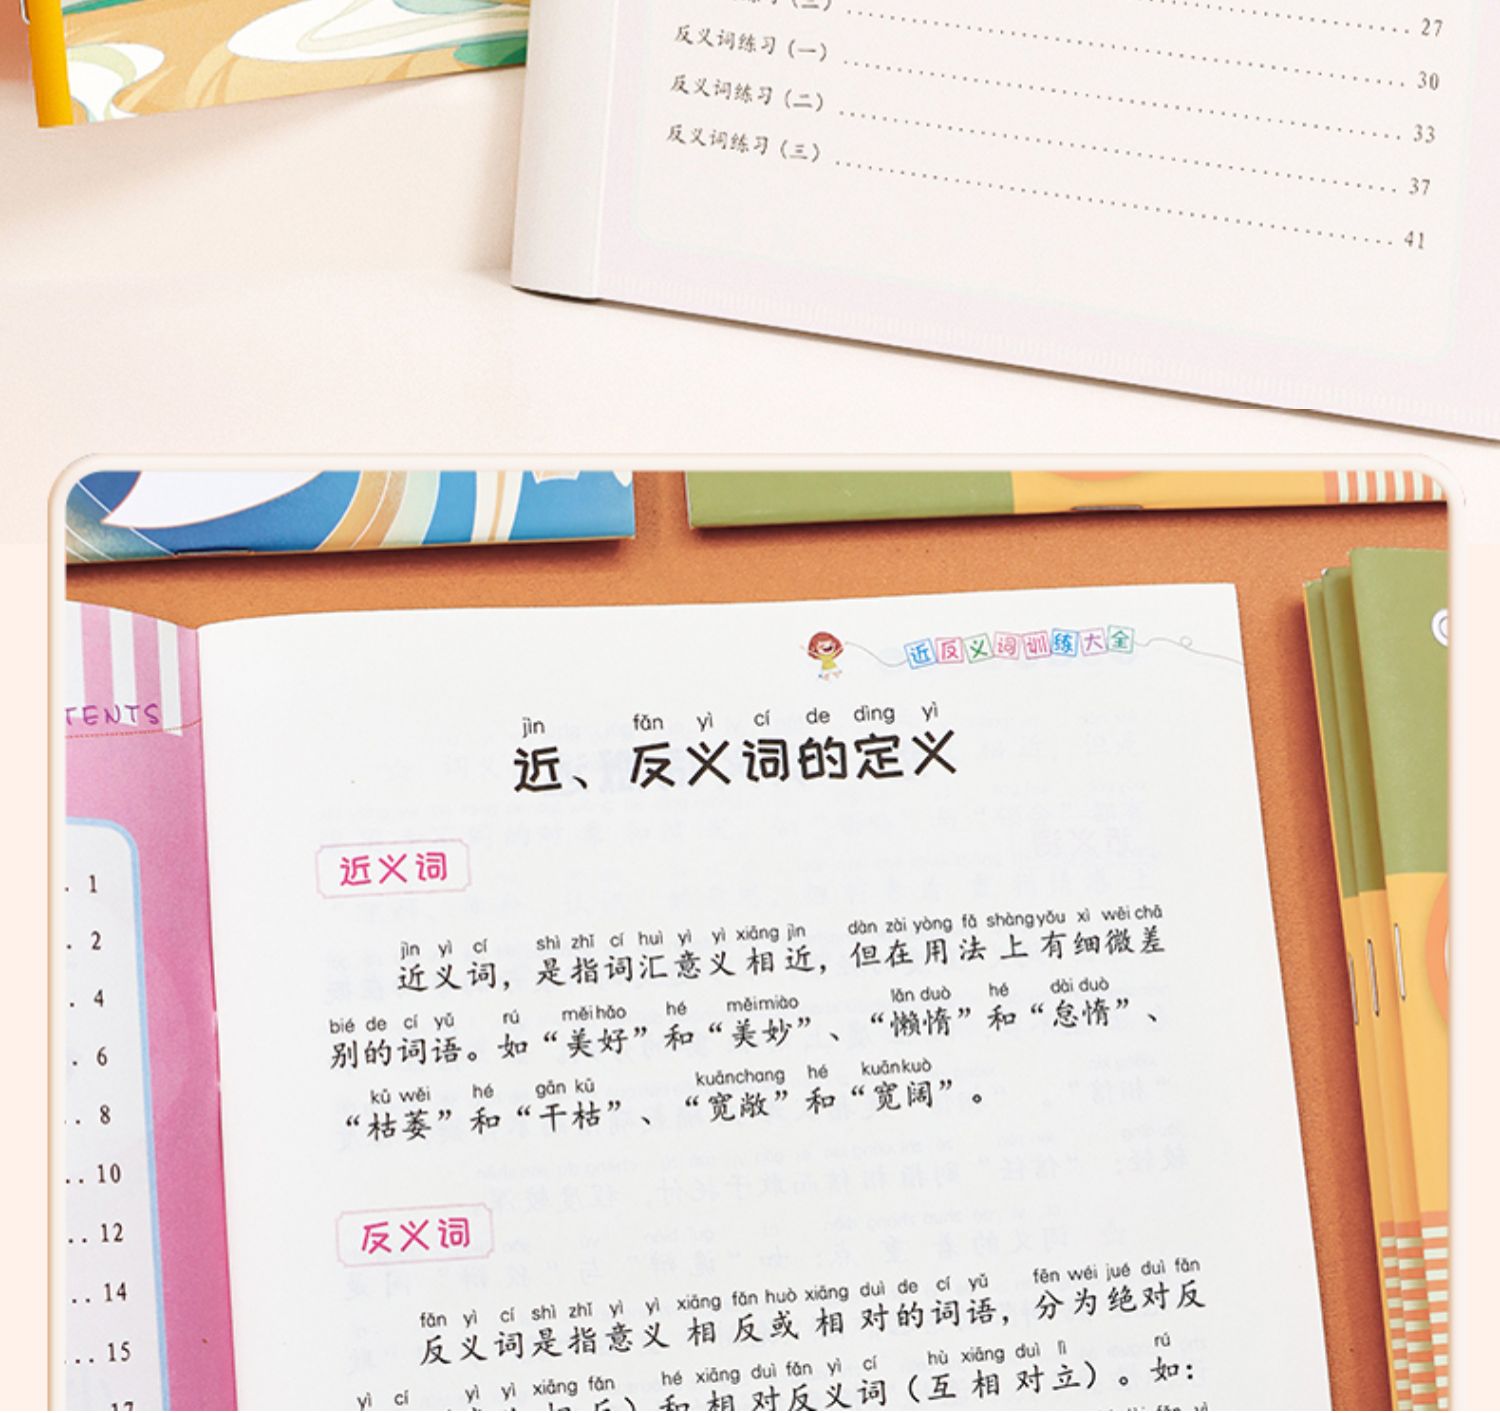 练习（二） 27
反义词练习（一） 30
反义词练习（二） 33
反义词练习（三） 37
41
近反义词训练大全
TENTS
jìn fǎn yì cí de dìng yì
近、反义词的定义
. 1
. 2
. 4
. 6
. 8
.. 10
.. 12
.. 14
... 15
17
近义词
jìn yì cí shì zhǐ cí huì yì yì xiāng jìn dàn zài yòng fǎ shàng yǒu xì wēi chā
近义词，是指词汇意义相近，但在用法上有细微差
bié de cí yǔ rú měi hǎo hé měi miào lǎn duò hé dài duò
别的词语。如“美好”和“美妙”、“懒惰”和“怠惰”、
kū wěi hé gān kū kuānchang hé kuānkuò
“枯萎”和“干枯”、“宽敞”和“宽阔”。
反义词
fǎn yì cí shì zhǐ yì yì xiāng fǎn huò xiāng duì de cí yǔ fēn wéi jué duì fǎn
反义词是指意义相反或相对的词语，分为绝对反
yì cí yì yì xiāng fǎn hé xiāng duì fǎn yì cí hù xiāng duì lì rú
相反）和相对反义词（互相对立）。如：